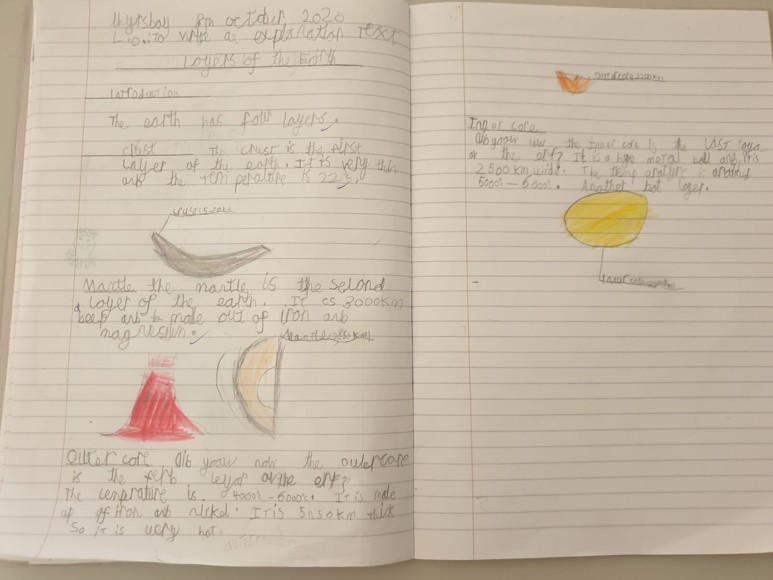 Thursday 8th october 2020
L.O. to write a explanation text
Layers of the Earth
Introduction
The earth has four layers.
crust The crust is the first
layer of the earth. It is very thin
anb the temperature is 22s.
crust is
Mantle the mantle is the second
layer of the earth. It is 3000km
beep anb is made out of Iron anb
magnesium.
Mantle
outer core bib yoow now the outercore
is the layer of the erf?
The temprature is 4000s - 6000s. It is made
up of Iron anb nickel. It is thick
So it is very hot.
outercore
Inner core
bib yoow now the Inner core is the last layer
of the erf? It is a hge metal ball anb it is
2500 km wide. The temp erature is
5000s - 6000s. Another hot layer.
Inner core